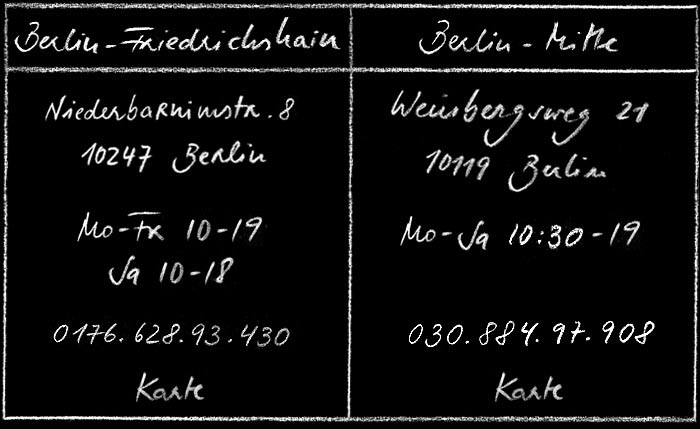 Berlin-Friedrichshain
Niederbarnimstr. 8
10247 Berlin
Mo-Fr 10-19
Sa 10-18
0176.628.93.430
Karte
Berlin-Mitte
Weinbergsweg 21
10119 Berlin
Mo-Sa 10:30-19
030.884.97.908
Karte